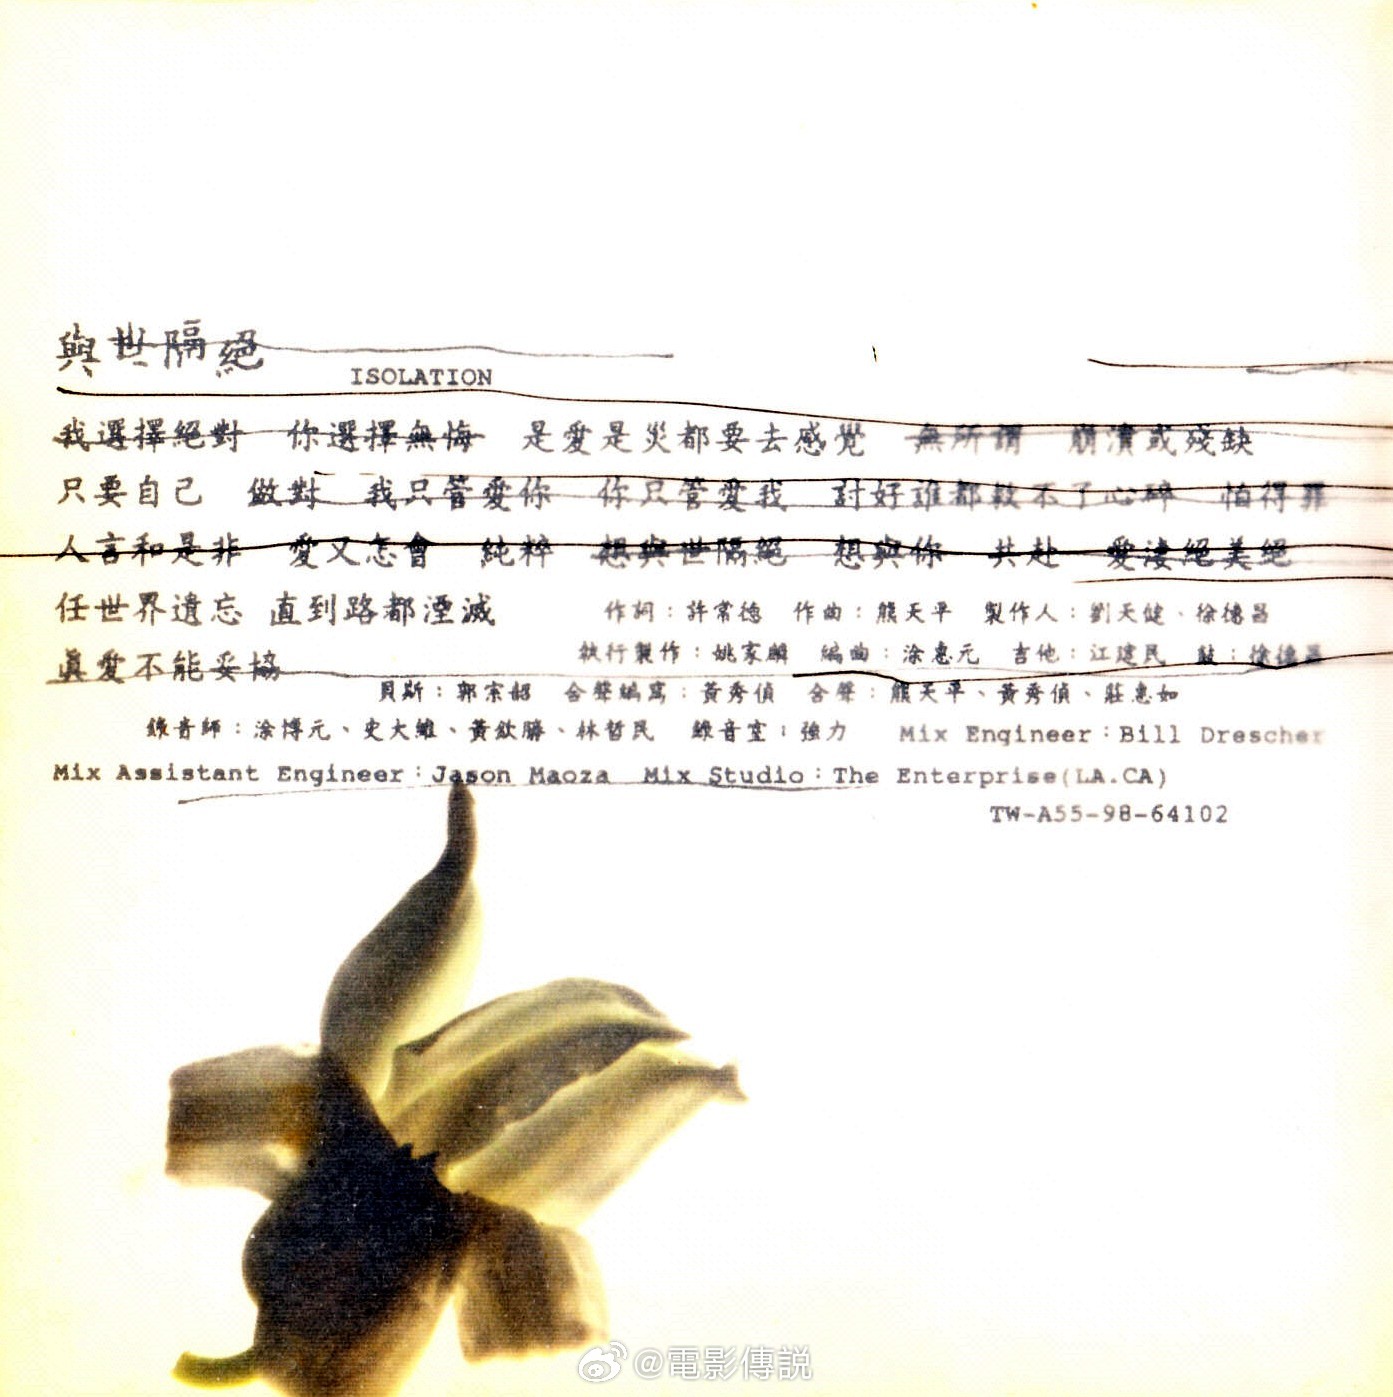 與世隔絕
ISOLATION
我選擇絕對 你選擇無悔 是愛是災都要去感覺 無所謂 崩潰或殘缺
只要自己 做對 我只管愛你 你只管愛我 討好誰都救不了心碎 怕得罪
人言和是非 愛又怎會 純粹 想與世隔絕 想與你 共赴 愛淒絕美絕
任世界遺忘 直到路都湮滅 作詞：許常德 作曲：熊天平 製作人：劉天健、徐德昌
真愛不能妥協 執行製作：姚家麟 編曲：涂惠元 吉他：江建民 鼓：徐德昌
貝斯：郭宗韶 合聲編寫：黃秀偵 合聲：熊天平、黃秀偵、莊惠如
錄音師：涂博元、史大維、黃欽勝、林哲民 錄音室：強力 Mix Engineer：Bill Drescher
Mix Assistant Engineer：Jason Maoza Mix Studio：The Enterprise(LA.CA)
TW-A55-98-64102
@電影傳説